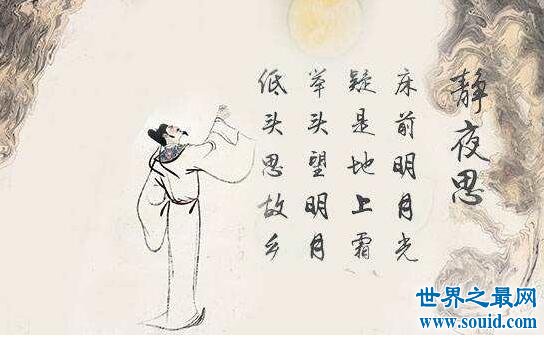 静夜思
床前明月光
疑是地上霜
举头望明月
低头思故乡
世界之最网
www.souid.com